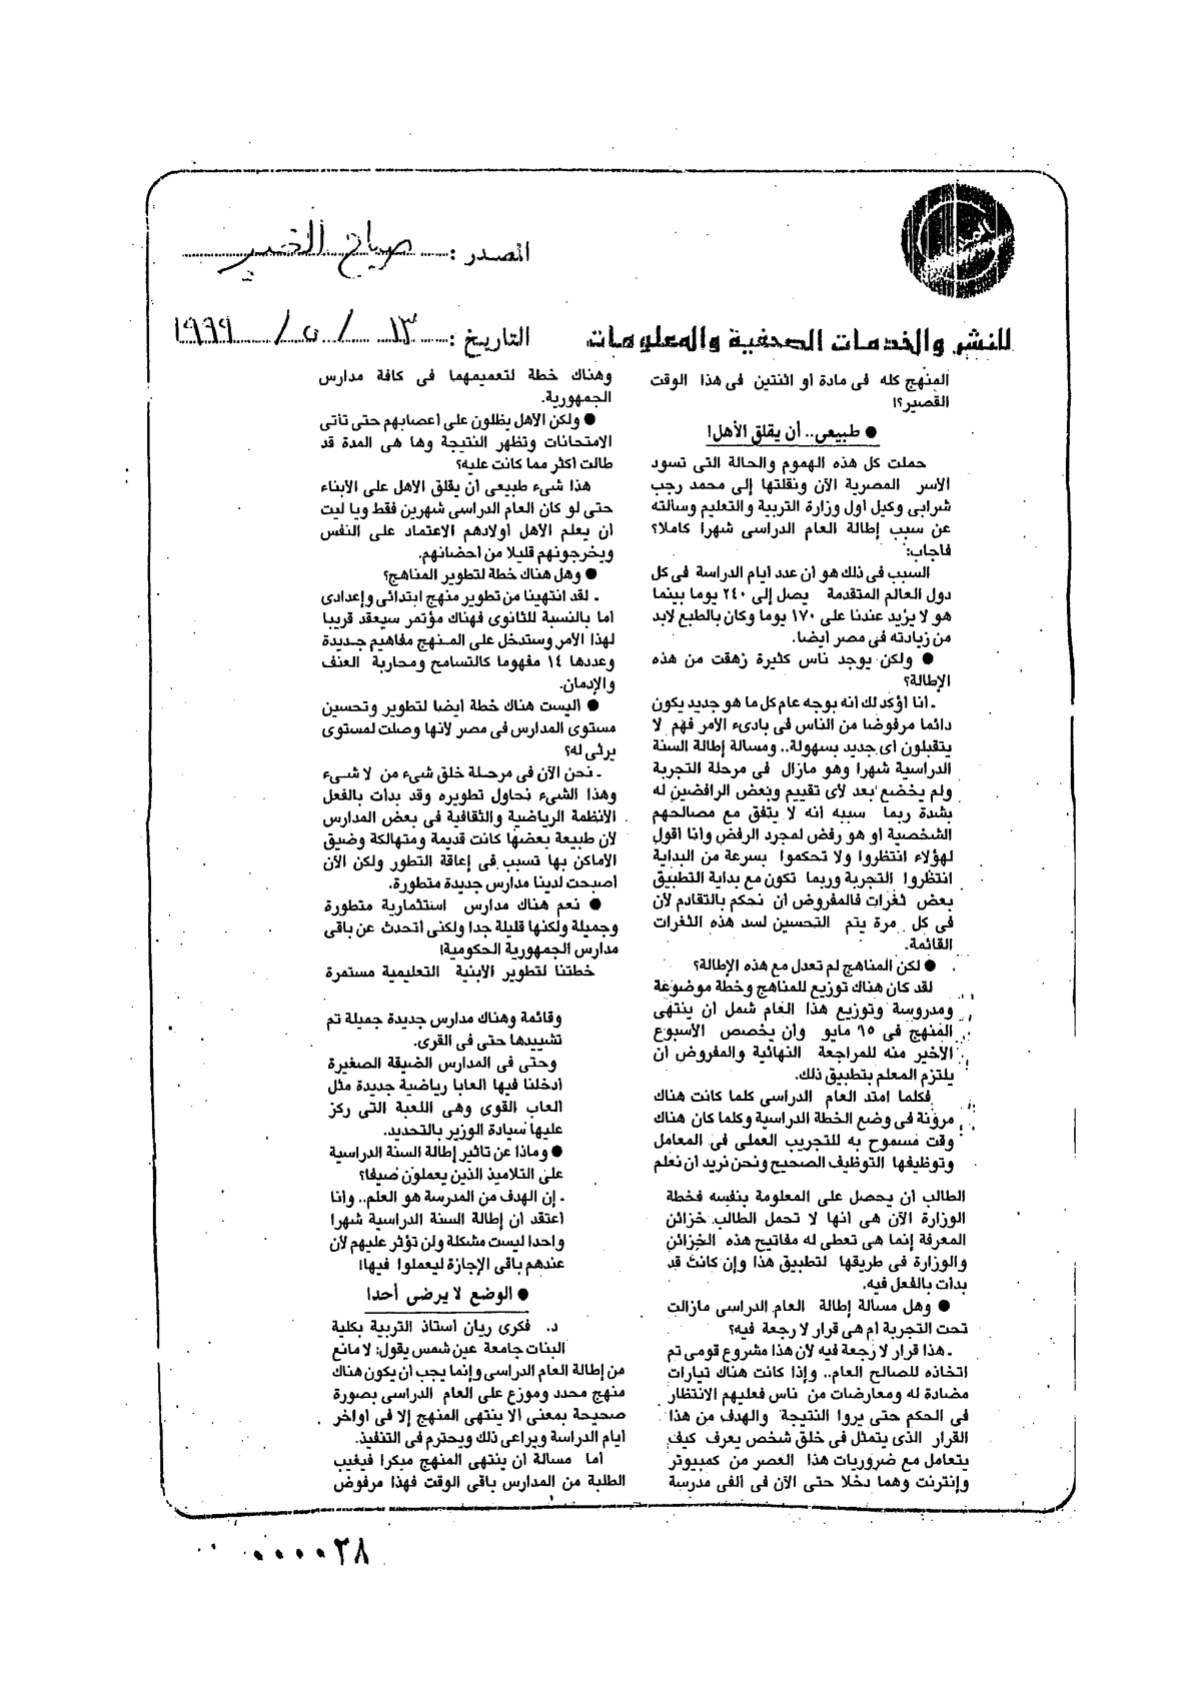 المصدر : صباح الخير
للنشر والخدمات الصحفية والمعلومات
التاريخ : ١٣ / ٥ / ١٩٩٩
المنهج كله فى مادة أو اثنتين فى هذا الوقت
القصير؟!
● طبيعى.. أن يقلق الأهل!
حملت كل هذه الهموم والحالة التى تسود
الأسر المصرية الآن ونقلتها إلى محمد رجب
شرابى وكيل أول وزارة التربية والتعليم وسألته
عن سبب إطالة العام الدراسى شهرا كاملا؟
فأجاب:
السبب فى ذلك هو أن عدد أيام الدراسة فى كل
دول العالم المتقدمة يصل إلى ٢٤٠ يوما بينما
هو لا يزيد عندنا على ١٧٠ يوما وكان بالطبع لابد
من زيادته فى مصر أيضا.
● ولكن يوجد ناس كثيرة زهقت من هذه
الإطالة؟
ـ أنا أؤكد لك أنه بوجه عام كل ما هو جديد يكون
دائما مرفوضا من الناس فى بادىء الأمر فهم لا
يتقبلون أى جديد بسهولة.. ومسألة إطالة السنة
الدراسية شهرا وهو مازال فى مرحلة التجربة
ولم يخضع بعد لأى تقييم وبعض الرافضين له
بشدة ربما سببه أنه لا يتفق مع مصالحهم
الشخصية أو هو رفض لمجرد الرفض وأنا أقول
لهؤلاء انتظروا ولا تحكموا بسرعة من البداية
انتظروا التجربة وربما تكون مع بداية التطبيق
بعض ثغرات فالمفروض أن نحكم بالتقادم لأن
فى كل مرة يتم التحسين لسد هذه الثغرات
القائمة.
● لكن المناهج لم تعدل مع هذه الإطالة؟
لقد كان هناك توزيع للمناهج وخطة موضوعة
ومدروسة وتوزيع هذا العام شمل أن ينتهى
المنهج فى ١٥ مايو وأن يخصص الأسبوع
الأخير منه للمراجعة النهائية والمفروض أن
يلتزم المعلم بتطبيق ذلك.
فكلما امتد العام الدراسى كلما كانت هناك
مرونة فى وضع الخطة الدراسية وكلما كان هناك
وقت مسموح به للتجريب العملى فى المعامل
وتوظيفها التوظيف الصحيح ونحن نريد أن نعلم
الطالب أن يحصل على المعلومة بنفسه فخطة
الوزارة الآن هى أنها لا تحمل الطالب خزائن
المعرفة إنما هى تعطى له مفاتيح هذه الخزائن
والوزارة فى طريقها لتطبيق هذا وإن كانت قد
بدأت بالفعل فيه.
● وهل مسألة إطالة العام الدراسى مازالت
تحت التجربة أم هى قرار لا رجعة فيه؟
ـ هذا قرار لا رجعة فيه لأن هذا مشروع قومى تم
اتخاذه للصالح العام.. وإذا كانت هناك تيارات
مضادة له ومعارضات من ناس فعليهم الانتظار
فى الحكم حتى يروا النتيجة والهدف من هذا
القرار الذى يتمثل فى خلق شخص يعرف كيف
يتعامل مع ضروريات هذا العصر من كمبيوتر
وإنترنت وهما دخلا حتى الآن فى ألفى مدرسة
وهناك خطة لتعميمهما فى كافة مدارس
الجمهورية.
● ولكن الأهل يظلون على أعصابهم حتى تأتى
الامتحانات وتظهر النتيجة وها هى المدة قد
طالت أكثر مما كانت عليه؟
هذا شىء طبيعى أن يقلق الأهل على الأبناء
حتى لو كان العام الدراسى شهرين فقط ويا ليت
أن يعلم الأهل أولادهم الاعتماد على النفس
ويخرجونهم قليلا من أحضانهم.
● وهل هناك خطة لتطوير المناهج؟
ـ لقد انتهينا من تطوير منهج ابتدائى وإعدادى
أما بالنسبة للثانوى فهناك مؤتمر سيعقد قريبا
لهذا الأمر وستدخل على المنهج مفاهيم جديدة
وعددها ١٤ مفهوما كالتسامح ومحاربة العنف
والإدمان.
● أليست هناك خطة أيضا لتطوير وتحسين
مستوى المدارس فى مصر لأنها وصلت لمستوى
يرثى له؟
ـ نحن الآن فى مرحلة خلق شىء من لا شىء
وهذا الشىء نحاول تطويره وقد بدأت بالفعل
الأنظمة الرياضية والثقافية فى بعض المدارس
لأن طبيعة بعضها كانت قديمة ومتهالكة وضيق
الأماكن بها تسبب فى إعاقة التطور ولكن الآن
أصبحت لدينا مدارس جديدة متطورة.
● نعم هناك مدارس استثمارية متطورة
وجميلة ولكنها قليلة جدا ولكنى أتحدث عن باقى
مدارس الجمهورية الحكومية!
خطتنا لتطوير الأبنية التعليمية مستمرة
وقائمة وهناك مدارس جديدة جميلة تم
تشييدها حتى فى القرى.
وحتى فى المدارس الضيقة الصغيرة
أدخلنا فيها ألعابا رياضية جديدة مثل
ألعاب القوى وهى اللعبة التى ركز
عليها سيادة الوزير بالتحديد.
● وماذا عن تأثير إطالة السنة الدراسية
على التلاميذ الذين يعملون صيفا؟
ـ إن الهدف من المدرسة هو العلم.. وأنا
أعتقد أن إطالة السنة الدراسية شهرا
واحدا ليست مشكلة ولن تؤثر عليهم لأن
عندهم باقى الإجازة ليعملوا فيها!
● الوضع لا يرضى أحدا
د. فكرى ريان أستاذ التربية بكلية
البنات جامعة عين شمس يقول: لا مانع
من إطالة العام الدراسى وإنما يجب أن يكون هناك
منهج محدد وموزع على العام الدراسى بصورة
صحيحة بمعنى ألا ينتهى المنهج إلا فى أواخر
أيام الدراسة ويراعى ذلك ويحترم فى التنفيذ.
أما مسألة أن ينتهى المنهج مبكرا فيغيب
الطلبة من المدارس باقى الوقت فهذا مرفوض
٠٠٠٠٢٨